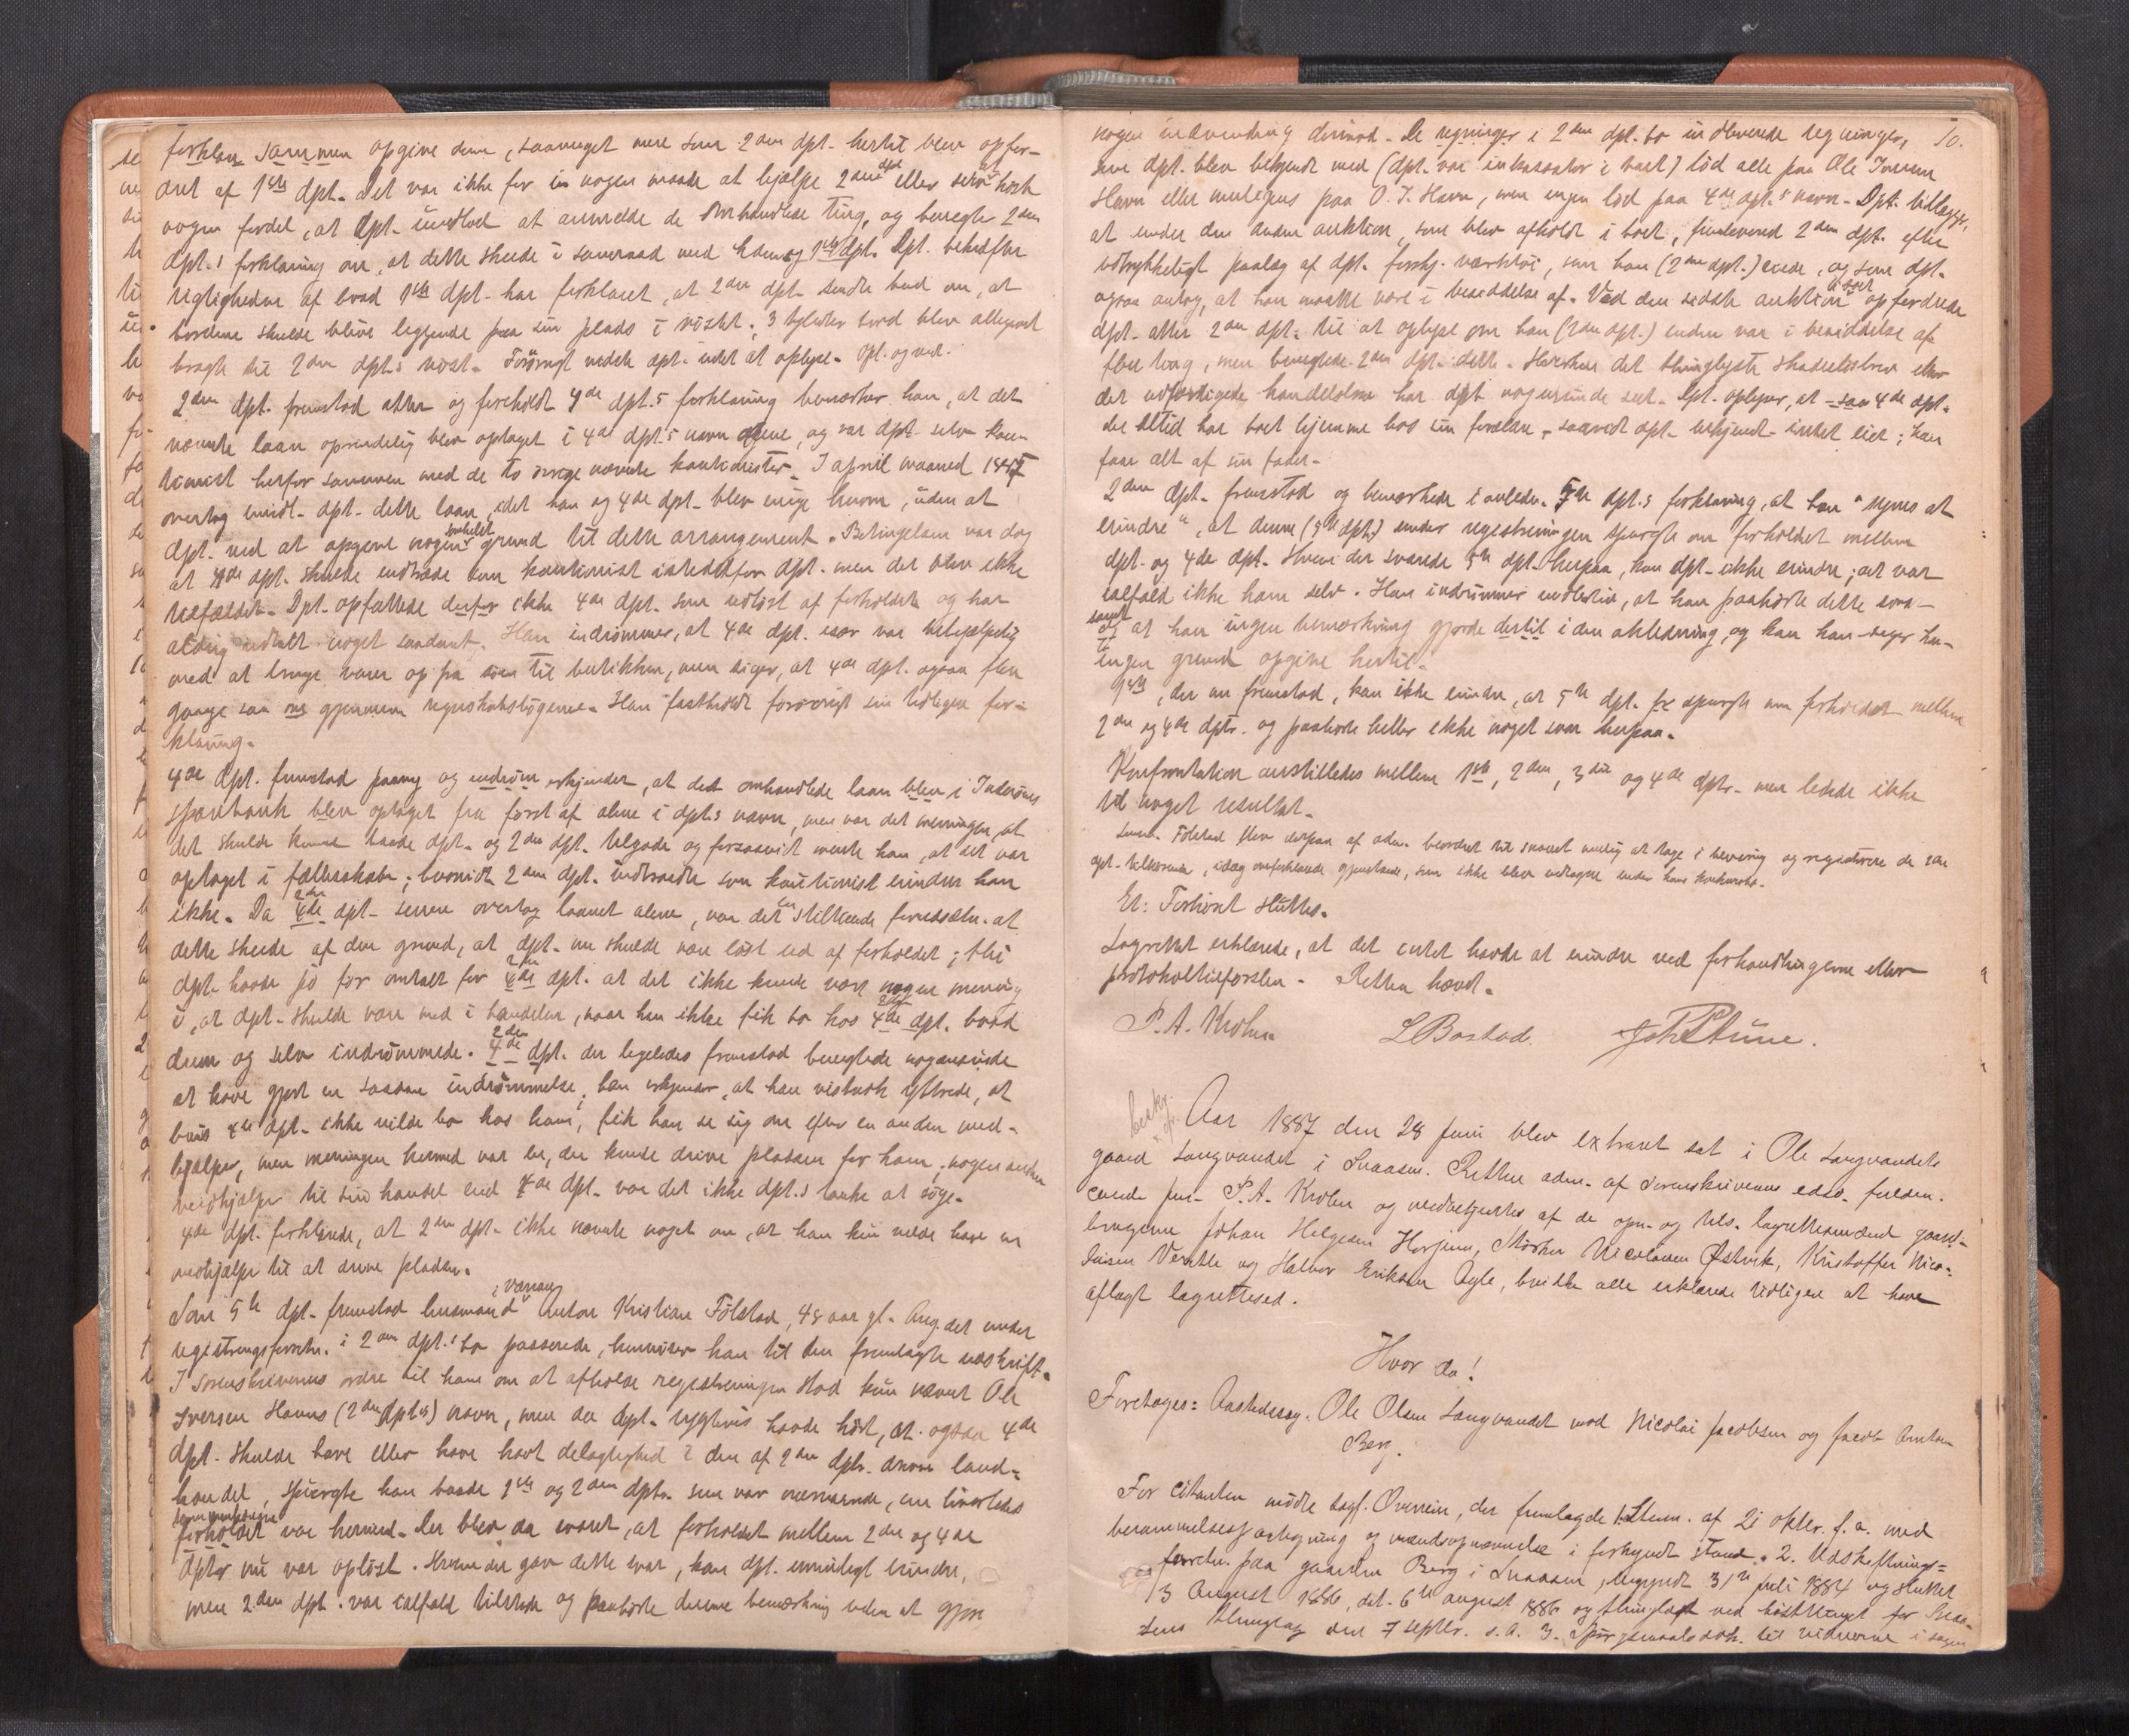 forklar sammen opgive denne, saameget mere som 2den dpt. hertil blev opfor-
dret af 1ste dpt. Det var ikke for in nogen maade at hjælpe 2den dpt eller selv at høste
nogen fordel, at dpt. undlod at anmelde de omhandlede ting, og benegter 2den
dpt.s forklaring om, at dette skede i samraad med ham og 1ste dpt. Dpt. bekræfter
rigtigheden af hvad 1ste dpt. har forklaret, at 2den dpt. sendte bud om, at
bordene skulde blive liggende paa sin plads i nöstet; 3 tylvter bord blev allerede
bragte til 2den dpts nöst. Forövrigt vidste dpt. intet at oplyse. Opl. og ved.
2den dpt. fremstod atter og foreholdt 4de dpt.s forklaring bemærker han, at det
nævnte laan oprindelig blev optaget i 4de dpt.s navn alene, og var dpt. selv kau-
tionist herfor sammen med de to övrige nævnte kautionister. I april maaned 1885
overtog imidl. dpt. dette laan, idet han og 4de dpt. blev enige herom, uden at
dpt. ved at opgive nogen enkelt grund til dette arrangement. Betingelsen var dog
at 4de dpt. skulde indtræde som kautionist istedetfor dpt. men det blev ikke
tilfældet. Dpt. opfattede derfor ikke 4de dpt. som udlöst af forholdet og har
aldrig udtalt noget saadant. Han indrömmer, at 4de dpt. især var behjælpelig
med at bringe varer op fra söen til butikken, men siger, at 4de dpt. ogsaa flere
gange saa om gjennem regnskabsbögerne. Han fastholdt forövrigt sin tidligere for-
klaring.
4de dpt. fremstod paany og indröm erkjender, at det omhandlede laan blev i Inderöens
sparebank blev optaget fra först af alene i dpt.s navn, men var det meningen, at
det skulde komme baade dpt. og 2den dpt. tilgode og forsaavidt mente han, at det var
optaget i fællesskab; hvorvidt 2den dpt. indtraadte som kautionist erindrer han
ikke. Da 2den dpt. senere overtog laanet alene, var det en stiltiende forudsætn. at
dette skede af den grund, at dpt. nu skulde være löst ud af forholdet; thi
dpt. havde jo för omtalt for 2den dpt. at det ikke kunde være nogen mening
i, at dpt. skulde være med i handelen, naar han ikke fik bo hos 2den dpt. hvad
denne og selv indrömmede. 2den dpt. der ligeledes fremstod benegtede nogensinde
at have gjort en saadan indrömmelse; han erkjender, at han vistnok ytrede, at
hvis 4de dpt. ikke vilde bo hos ham, fik han se sig om efter en anden med-
hjælper, men meningen hermed var en, der kunde drive pladsen for ham; nogen anden
medhjælper til sin handel end 4de dpt. var det ikke dpt.s tanke at söge.
4de dpt. forklarede, at 2den dpt. ikke nævnte noget om, at han kun vilde have en
medhjælper til at drive pladsen.
Som 5te dpt. fremstod lensmand i Værran Anton Kristian Fölstad, 48 aar gl. Ang. det under
registreringsforretn. i 2den dpt.s bo passerede, henviser han til den fremlagte udskrift.
I sorenskriverens ordre til ham om at afholde registreringen stod kun nævnt Ole
Iversen Havns (2den dpts) navn, men da dpt. rygtevis havde hört, at ogsaa 4de
dpt. skulde have eller have havt delagtighed i den af 2den dpt. drevne land-
handel, spurgte han baade 1ste og 2den dptr. som var nærværende, om hvorledes
forholdet var hermed. Der blev da svaret, at forholdet mellem 2den og 4de
dptr nu var oplöst. Hvem der gav dette svar, kan dpt. umuligt erindre,
men 2den dpt. var ialfald tilstede og paahörte denne bemærkning uden at gjöre
nogen indvending derimod. De regninger i 2den dpt. bo indleverede regninger, 10.
som dpt. blev bekjendt med (dpt. var inkassator i boet) löd alle paa Ole Iversen
Havn eller muligens paa O. I. Havn, men ingen löd paa 4de dpt.s navn. Dpt. tillægger,
at under den anden auktion, som blev afholdt i boet, fremleverede 2den dpt. efter
udtrykkeligt paalæg af dpt. forskj. værktöi, som han (2den dpt.) eiede, og som dpt.
ogsaa antog, at han maatte være i besiddelse af. Ved den sidste auktion i boet opfordrede
dpt. atter 2den dpt. til at oplyse om han (2den dpt.) endnu var i besiddelse af
flere ting, men benegtede 2den dpt. dette. Hverken det thinglyste skadeslösbrev eller
det udfærdigede handelsbrev har dpt nogensinde seet. Dpt. oplyser, at saa 4de dpt.
der altid har boet hjemme hos sin forældre, saavidt dpt. bekjendt intet eier; han
faar alt af sin fader.
2den dpt. fremstod og bemærkede i anledn. 5te dpt.s forklaring, at han "synes at
erindre", at denne (5te dpt.) under registreringen spurgte om forholdet mellem
dpt. og 4de dpt. Hvem der svarede 5te dpt. herpaa, kan dpt. ikke erindre; det var
ialfald ikke ham selv. Han indrömmer endvidere, at han paahörte dette svar
samt at han ingen bemærkning gjorde dertil i den anledning, og kan han siger han
ingen grund opgive hertil.
1ste, der nu fremstod, kan ikke erindre, at 5te dpt. spurgte om forholdet mellem
2den og 4de dptr. og paahörte heller ikke noget svar herpaa.
Konfrontation anstilledes mellem 1ste, 2den, 3die og 4de dptr. men ledede ikke
til noget resultat.
Lensm. Fölstad blev derpaa af adm. beordret til snarest mulig at tage i bevaring og registrere de 2den
dpt. tilhörende, idag omforklarede gjenstande, som ikke blev medtagne under hans konkursbo.
Et: Forhöret sluttes.
Lagrettet erklærede, at det intet havde at erindre ved forhandlingerne eller
protokoltilförslen. Retten hævet.
P. A. Krohn L Bostad. Joh Stüne.
beskr.
Aar 1887 den 28 juni blev extraret sat i Ole Langvandets
gaard Langvandet i Snaasen. Retten adm. af sorenskriverens edsv. fuldm.
cand. jur. P. A. Krohn og medbetjentes af de opn. og tils. lagrettesmænd gaard-
brugerne Johan Helgesen Horjem, Mörten Nicolaisen Östvik, Kristoffer Nico-
laisen Veratle og Halvor Eriksen Agle, hvilke alle erklærede tidligere at have
aflagt lagrettesed.
Hvor da!
Foretages: Aastedssag. Ole Olsen Langvandet mod Nicolai Jacobsen og Jacob Anton
Berg.
For citanten mödte sagf. Overrein, der fremlagde 1. Stevn. af 21 oktbr. f. a. med
berammelsespaategning og mændsopnævnelse i forkyndt stand. 2. Udskiftnings-
forretn. paa gaarden Berg i Snaasen, begyndt 31te juli 1884 og sluttet
3 August 1886, dat. 6te august 1886 og thinglæst ved höstthinget for Snaa-
sens thinglag den 7 septbr. s.a. 3. Spörgsmaalsdok. til vidnerne i sagen